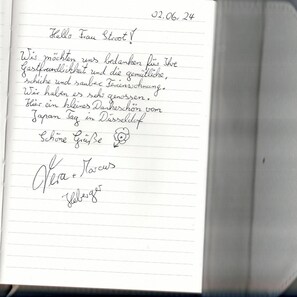 02.06.24
Hallo Frau Stroot!
Wir möchten uns bedanken für Ihre
Gastfreundlichkeit und die gemütliche,
schicke und saubere Ferienwohnung.
Wir haben es sehr genossen.
Hier ein kleines Dankeschön vom
Japan Tag in Düsseldorf
Schöne Grüße
+ Marcus